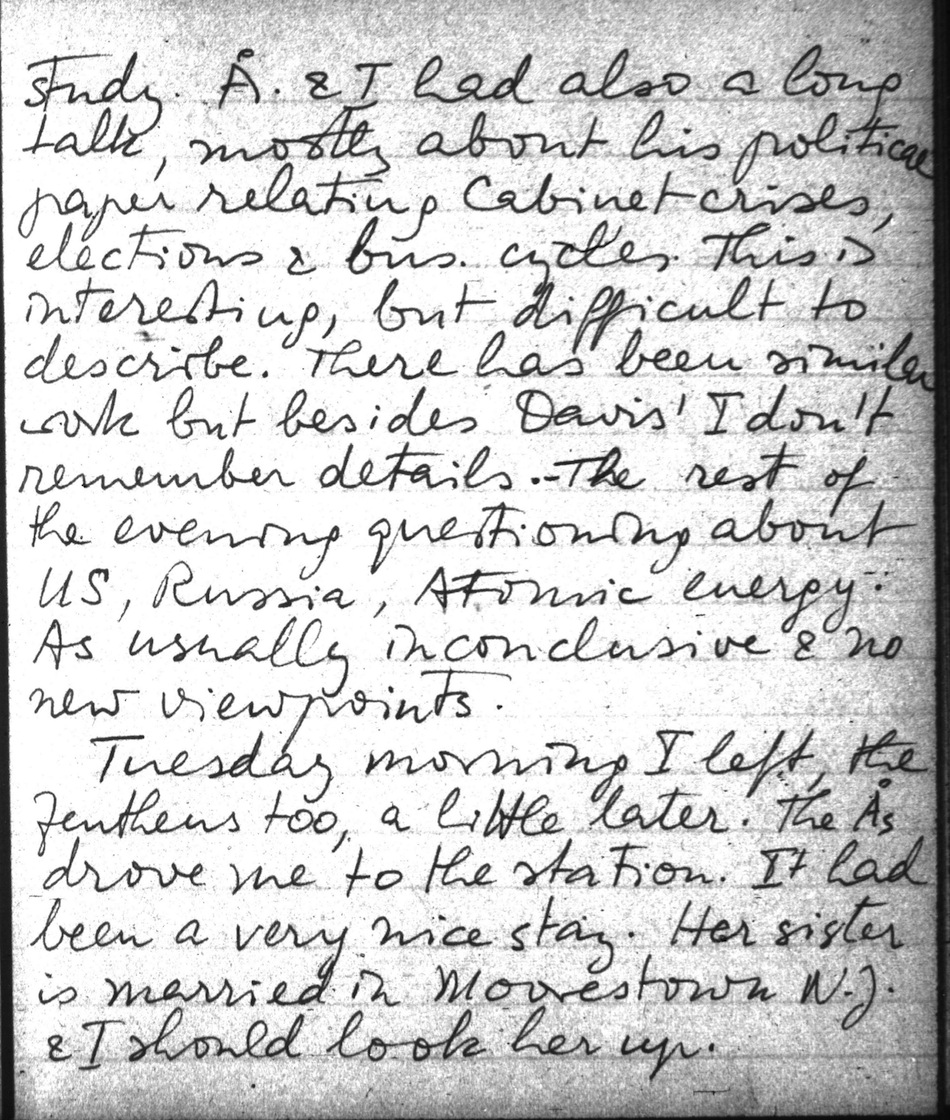 study. Å. & I had also a long
talk, mostly about his political
paper relating Cabinet crises,
elections & bus. cycles. This is
interesting, but difficult to
describe. There has been similar
work but besides Davis' I don't
remember details. - The rest of
the evening questioning about
US, Russia, Atomic energy:
As usually inconclusive & no
new viewpoints.
Tuesday morning I left, the
Zeuthens too, a little later. The Ås
drove me to the station. It had
been a very nice stay. Her sister
is married in Moorestown N.J.
& I should look her up.